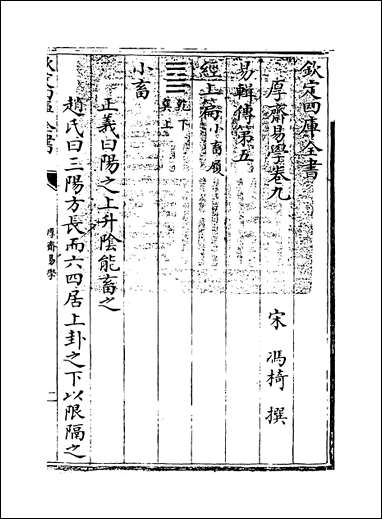 欽定四庫全書
厚齋易學卷九
宋 馮椅 撰
易輯傳第五
經上篇 小畜 頤
乾下
巽上
小畜
正義曰陽之上升陰能畜之
趙氏曰三陽方長而六四居上卦之下以限隔之
厚齋易學